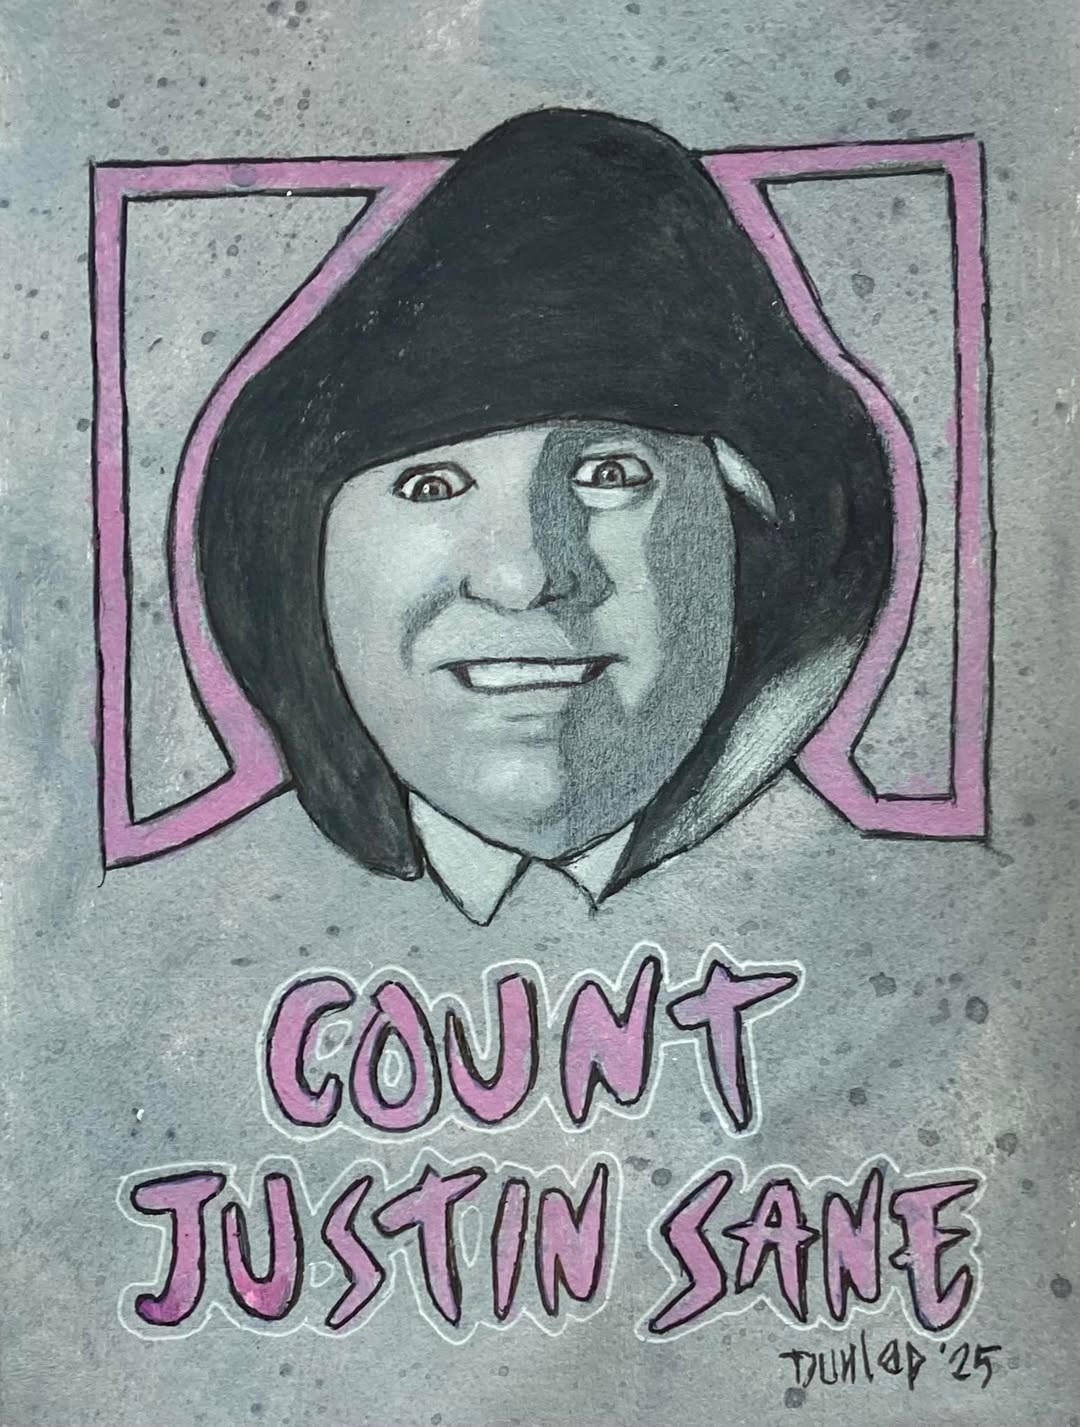 COUNT
JUSTIN SANE
DUNLAP '25